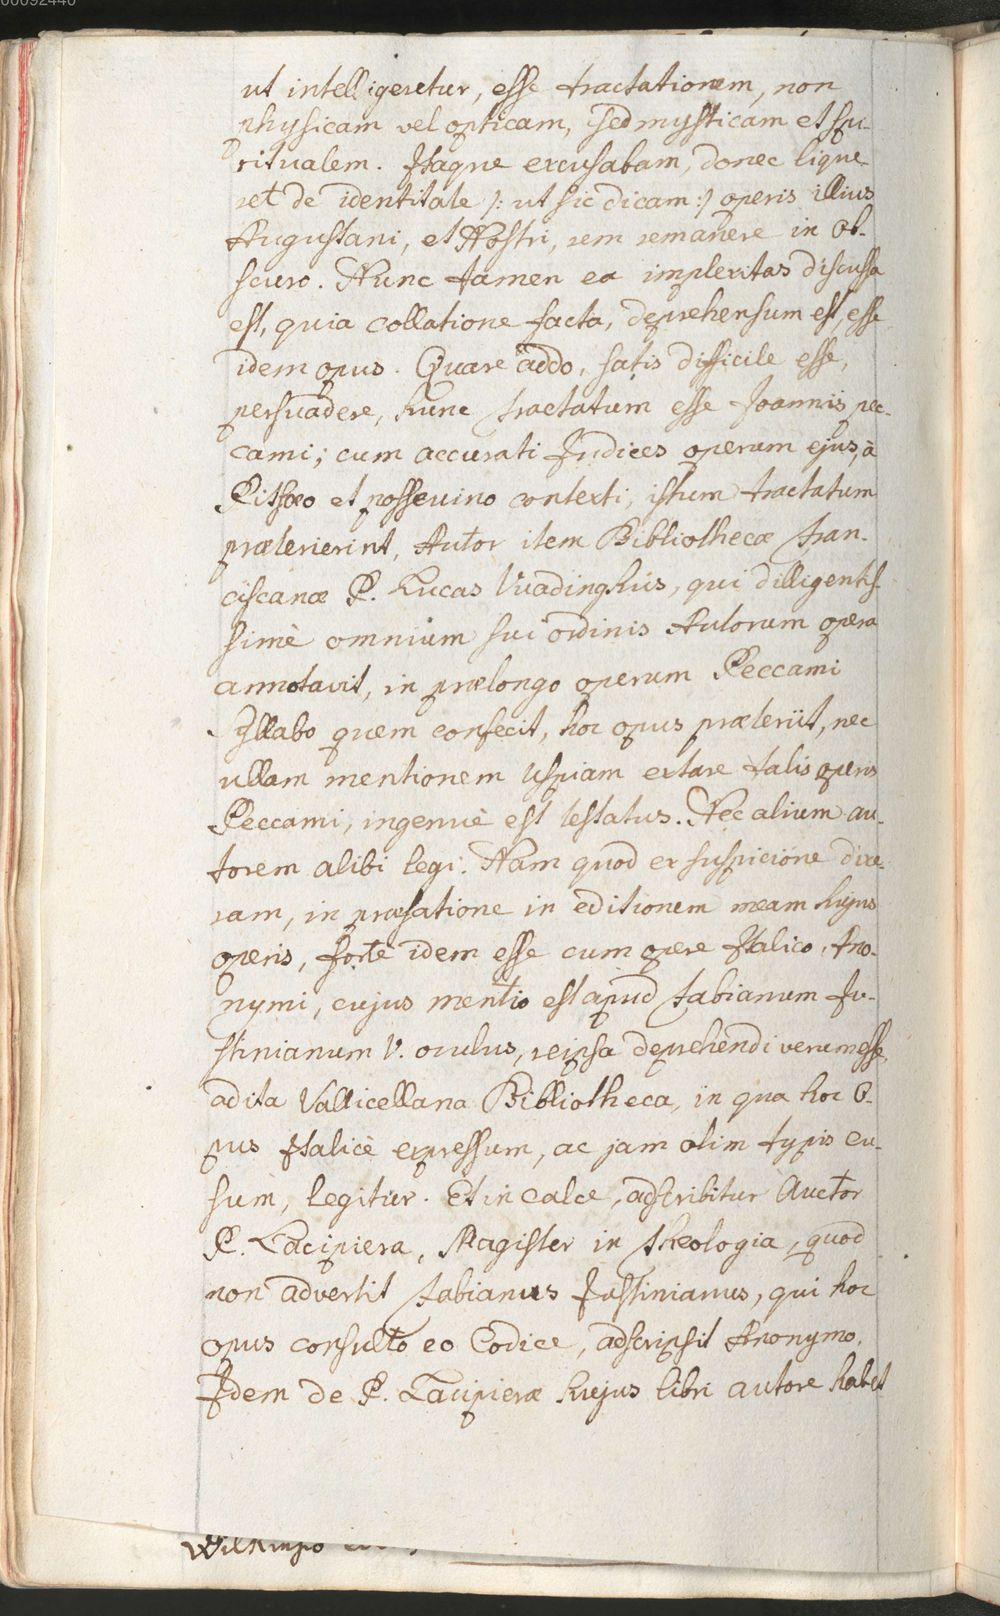 00092440
ut intelligeretur, esse tractationem, non
physicam vel opticam, sed mysticam et spi-
ritualem. Itaque excusabam, donec lique-
ret de identitate /: ut sic dicam :/ operis illius
Augustani, et Nostri, rem remanere in ob-
scuro. Nunc tamen ea implexitas discussa
est, quia collatione facta, deprehensum est, esse
idem opus. Quare addo, satis difficile esse,
persuadere, hunc tractatum esse Joannis pec-
cami; cum accurati Indices operum ejus, à
Pitsæo et possevino contexti, istum tractatum
præterierint, Autor item Bibliothecæ fran-
ciscanæ P. Lucas Vuadinghus, qui dilligentis-
simè omnium sui ordinis Autorum opera
annotavit, in prælongo operum Peccami
Syllabo quem confecit, hoc opus præteriit, nec
ullam mentionem uspiam extare talis operis
Peccami, ingenuè est testatus. Nec alium au-
torem alibi legi. Nam quod ex suspicione dixe-
ram, in præfatione in editionem meam hujus
operis, fortè idem esse cum opere Italico Ano-
nymi, cujus mentio est apud fabianum Ju-
stinianum V. oculus, reipsa deprehendi verum esse,
adita Vallicellana Bibliotheca, in qua hoc O-
pus Italicè expressum, ac jam olim typis cu-
sum, legitur. Et in calce, adscribitur Auctor
P. Lacipiera, Magister in theologia, quod
non advertit fabianus Justinianus, qui hoc
opus consulto eo Codice, adscripsit Anonymo.
Idem de P. Lacipieræ hujus libri autore habet